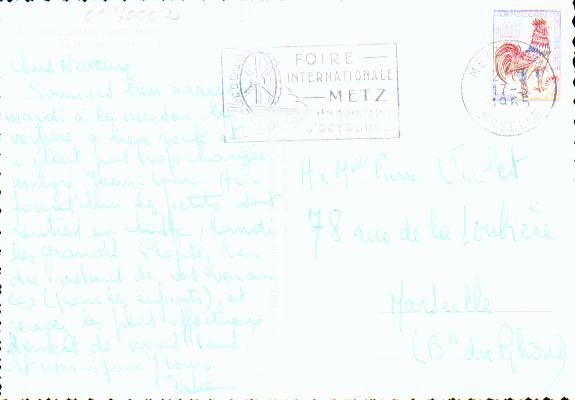 Chers Neveux
Sommes bien arrivés
mardi à la maison. La
voiture a bien roulé et
n'était pas trop chargée
malgré Jean-Louis. Au-
jourd'hui les petits sont
rentrés en classe, lundi
les grands. Profitez bien
du restant de vos vacan-
ces (pour les enfants), et
recevez les plus affectueux
baisers de nous tous
et merci pour tous
FOIRE
INTERNATIONALE
METZ
1ère QUINZAINE
D'OCTOBRE
METZ
17-
1965
MOSELLE
M. et Mme Pierre
78 rue de la
Marseille
(B. du Rhône)